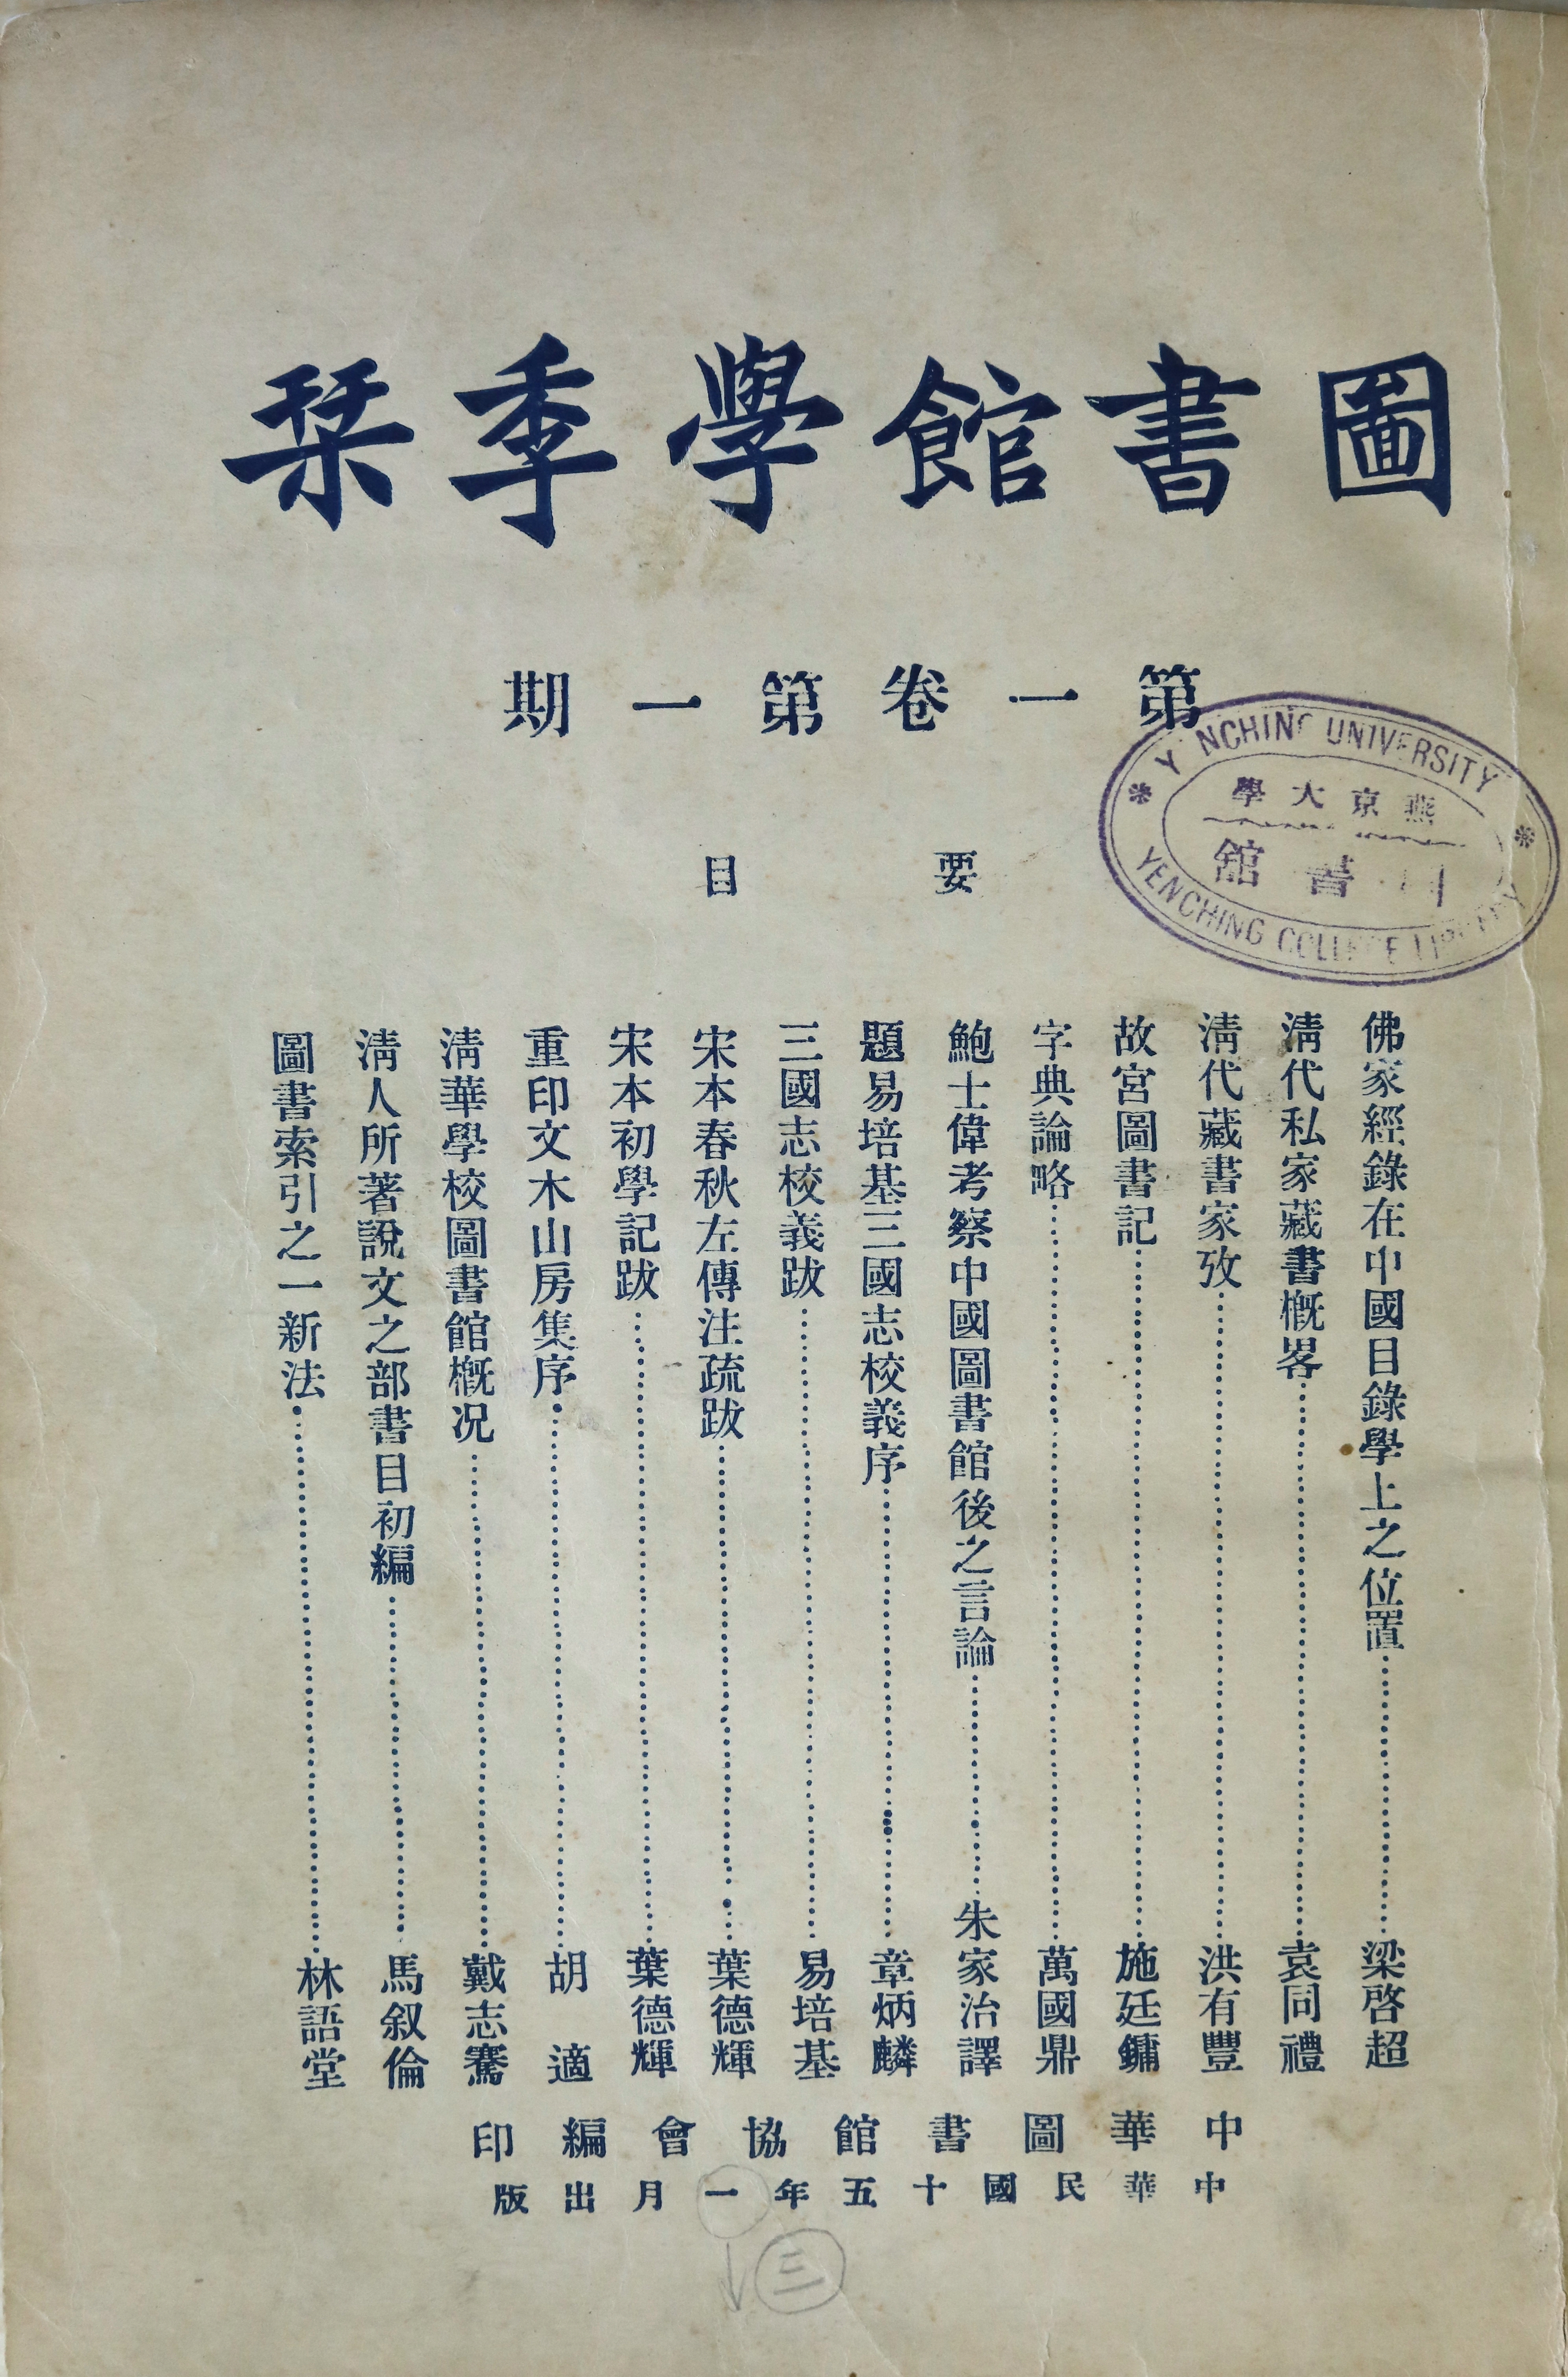 圖書館學季栞
第一卷第一期
要目
佛家經錄在中國目錄學上之位置……梁啓超
淸代私家藏書槪畧……袁同禮
淸代藏書家攷……洪有豐
故宮圖書記……施廷鏞
字典論略……萬國鼎
鮑士偉考察中國圖書館後之言論……朱家治譯
題易培基三國志校義序……章炳麟
三國志校義跋……易培基
宋本春秋左傳注疏跋……葉德輝
宋本初學記跋……葉德輝
重印文木山房集序……胡適
淸華學校圖書館槪况……戴志騫
淸人所著說文之部書目初編……馬叙倫
圖書索引之一新法……林語堂
中華圖書館協會編印
中華民國十五年一月出版
三
YENCHING UNIVERSITY
燕京大學
書館
YENCHING COLLEGE LIBRARY